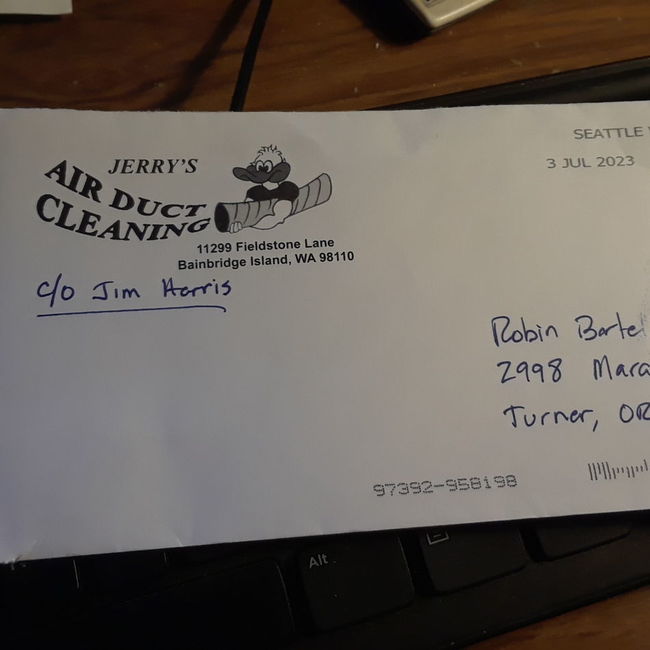 SEATTLE
3 JUL 2023
JERRY'S
AIR DUCT
CLEANING
11299 Fieldstone Lane
Bainbridge Island, WA 98110
c/o Jim Harris
Robin
2998
Turner, OR
97392-958198
Alt